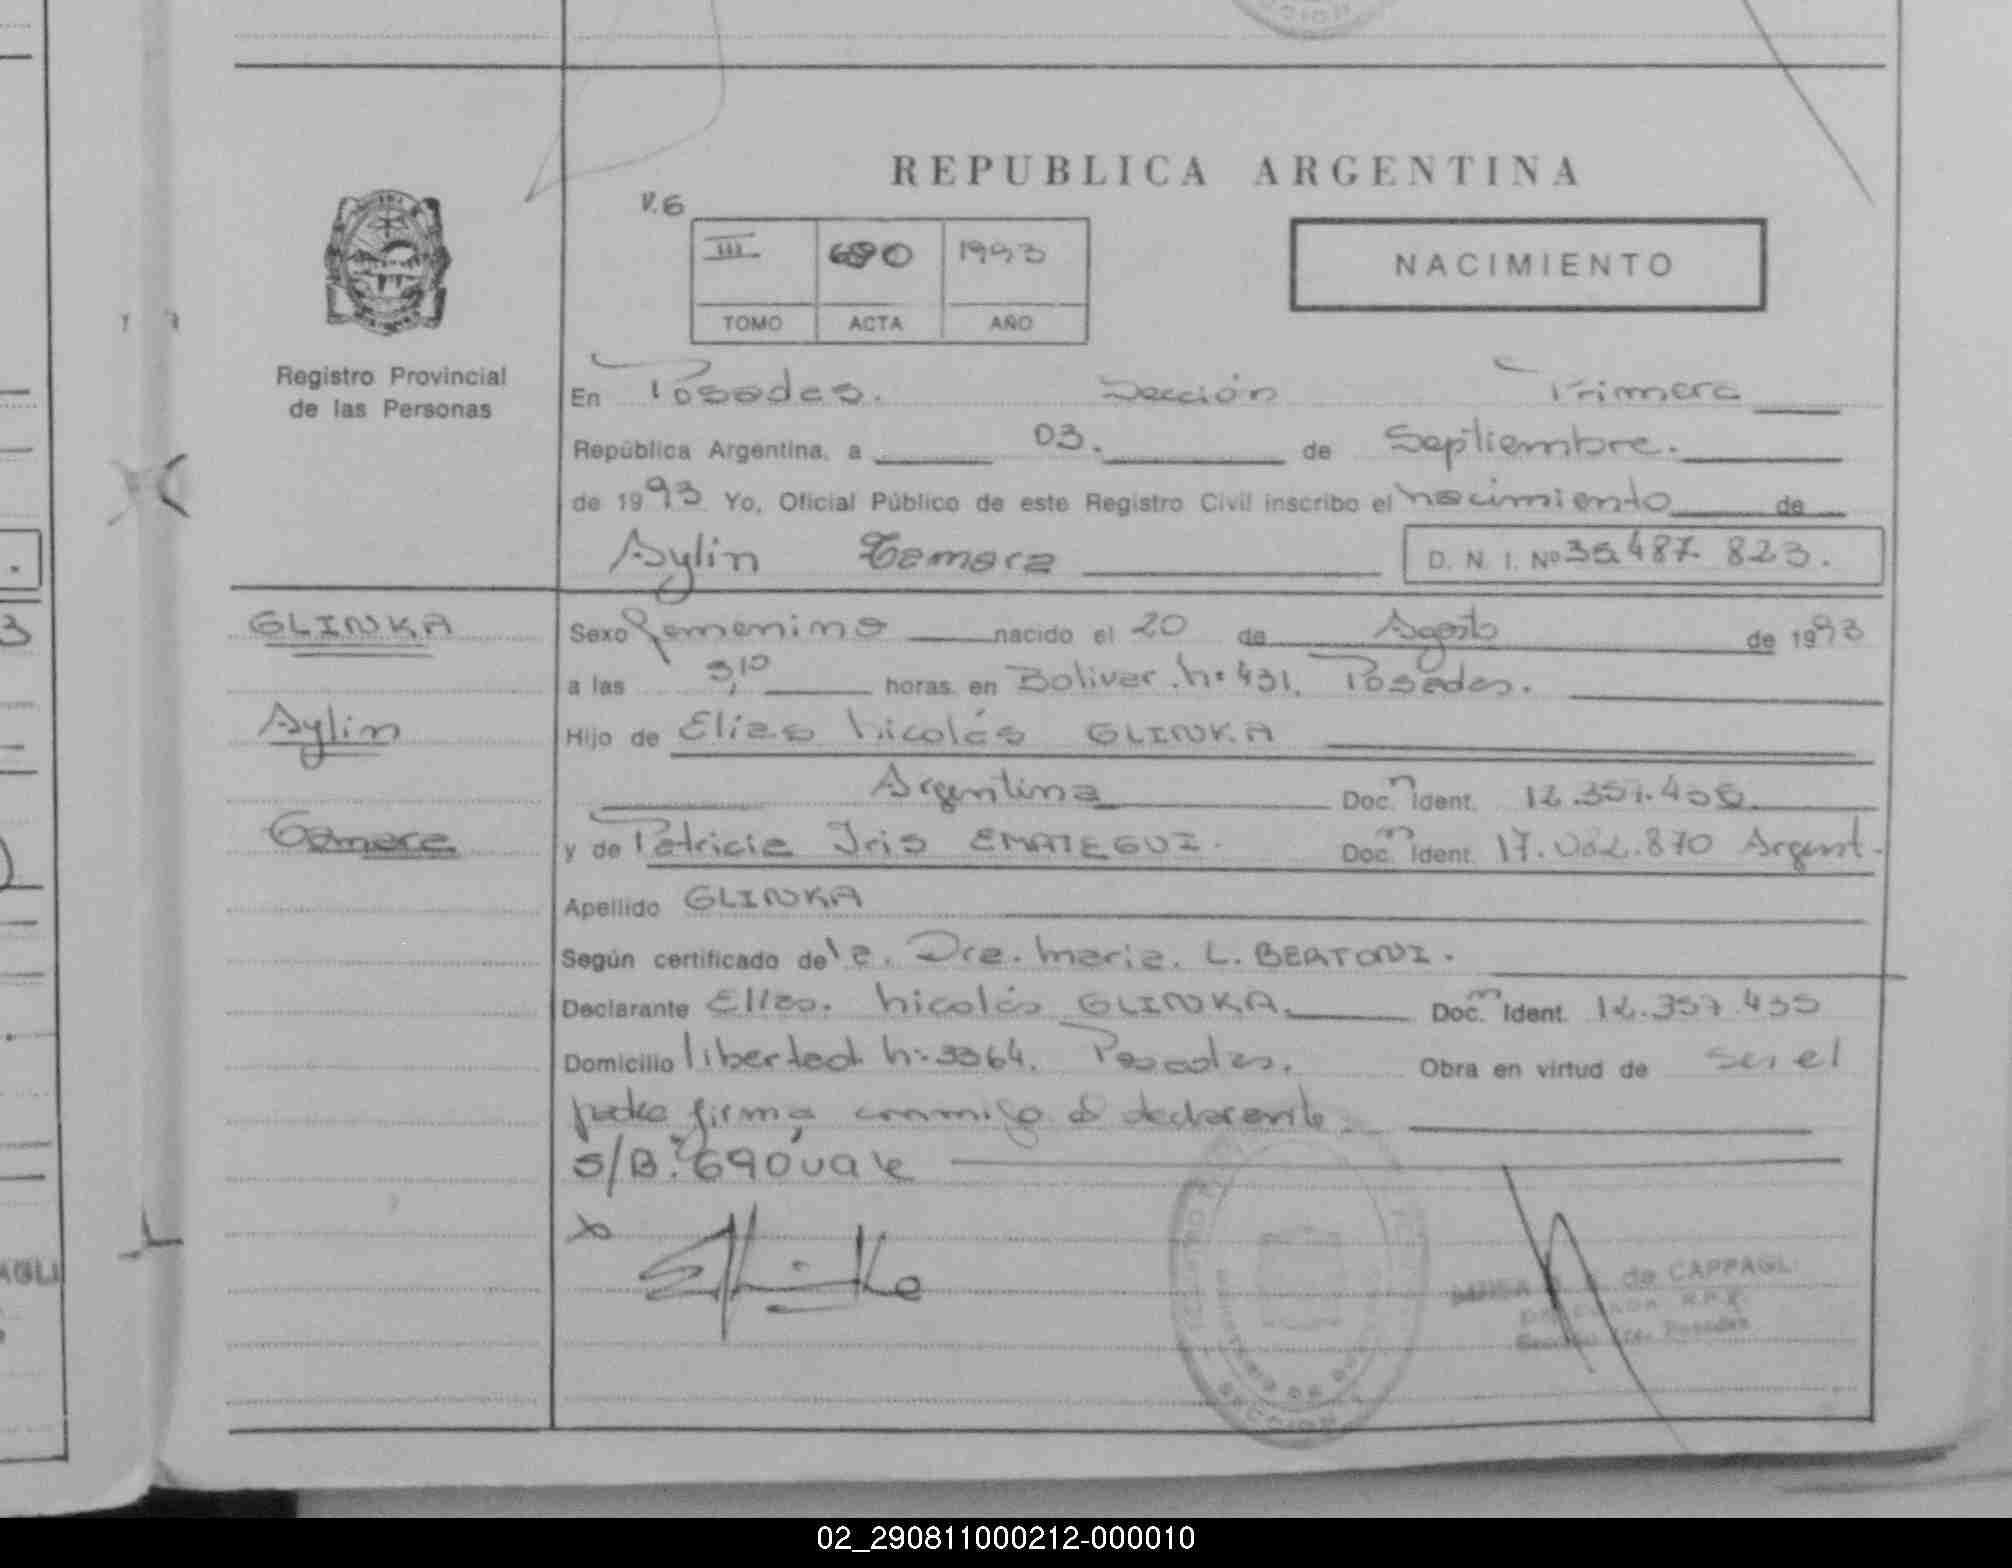 REPUBLICA ARGENTINA
V.6
III 690 1993
TOMO ACTA AÑO
NACIMIENTO
Registro Provincial
de las Personas
En Posadas. Sección Primera
República Argentina, a 03. de Septiembre.
de 1993 Yo, Oficial Público de este Registro Civil inscribo el nacimiento de
Aylin Tamara D. N. I. Nº 35.487.823.
GLINKA
Aylin
Tamara
Sexo femenino nacido el 20 de Agosto de 1993
a las 3,10 horas en Bolivar nº 431. Posadas.
Hijo de Elias Nicolás GLINKA
Argentina Doc. n Ident. 12.357.435
y de Patricia Iris EMATEGUI. Doc. n Ident. 17.082.870 Argent.
Apellido GLINKA
Según certificado de la. Dra. Maria. L. BERTONI.
Declarante Elias. Nicolás GLINKA. Doc. n Ident. 12.357.435
Domicilio libertad nº 3364. Posadas. Obra en virtud de ser el
padre firma conmigo el declarante.
S/B: "690" vale
x
de CAPPAGLI
Sección 1ra. Posadas
SECCION 1
02_290811000212-000010